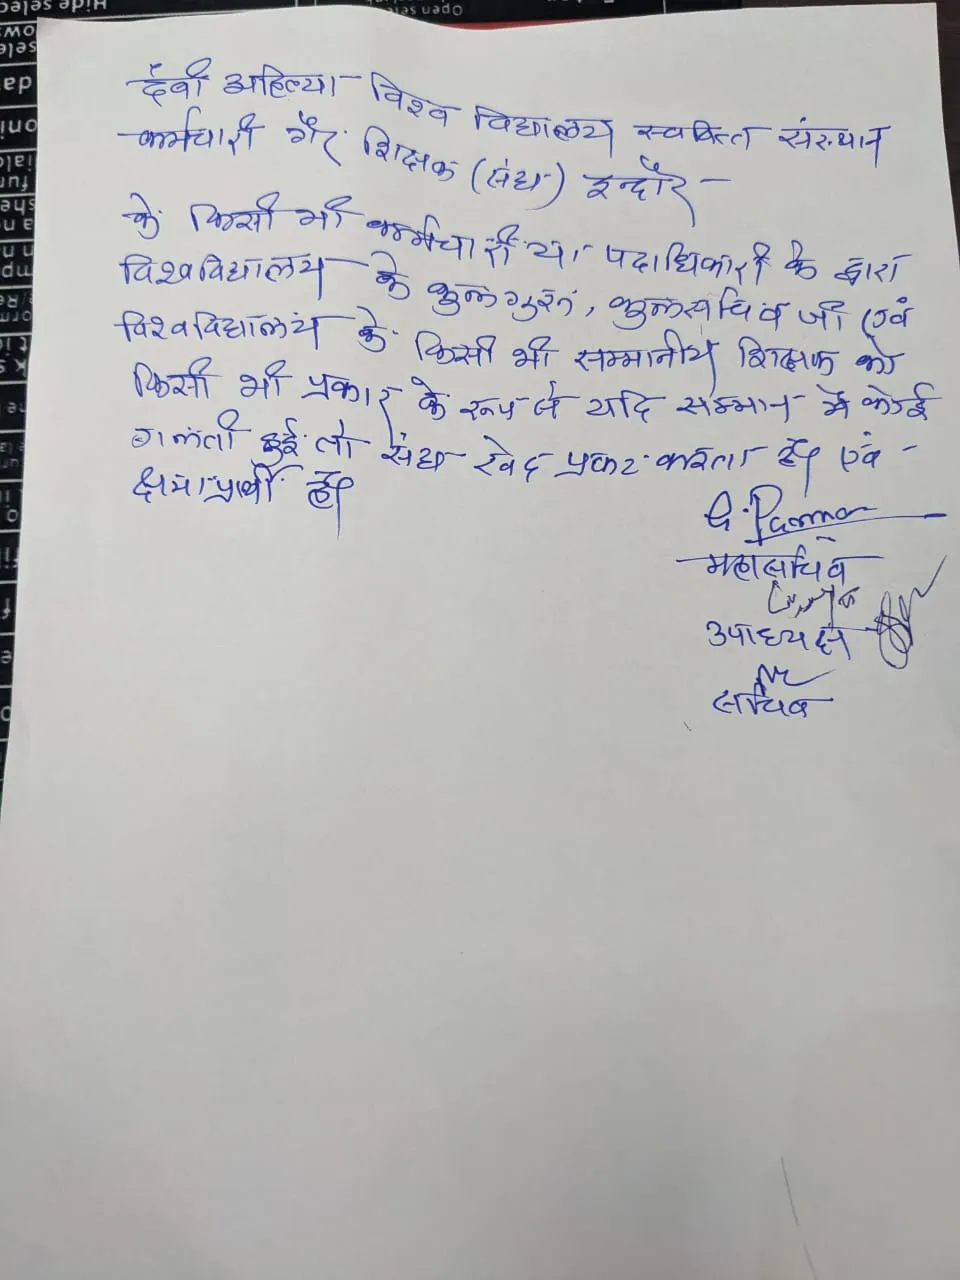 देवी अहिल्या विश्व विद्यालय स्ववित्त संस्थान
कर्मचारी गैर शिक्षक (संघ) इन्दौर -
के किसी भी कर्मचारी या पदाधिकारी के द्वारा
विश्वविद्यालय के कुलगुरू, कुलसचिव जी एवं
विश्वविद्यालय के किसी भी सम्मानीय शिक्षक को
किसी भी प्रकार के रूप से यदि सम्मान में कोई
गलती हुई तो संघ खेद प्रकट करता है एवं -
क्षमाप्रार्थी है
G. Parmar
महासचिव
उपाध्यक्ष
सचिव